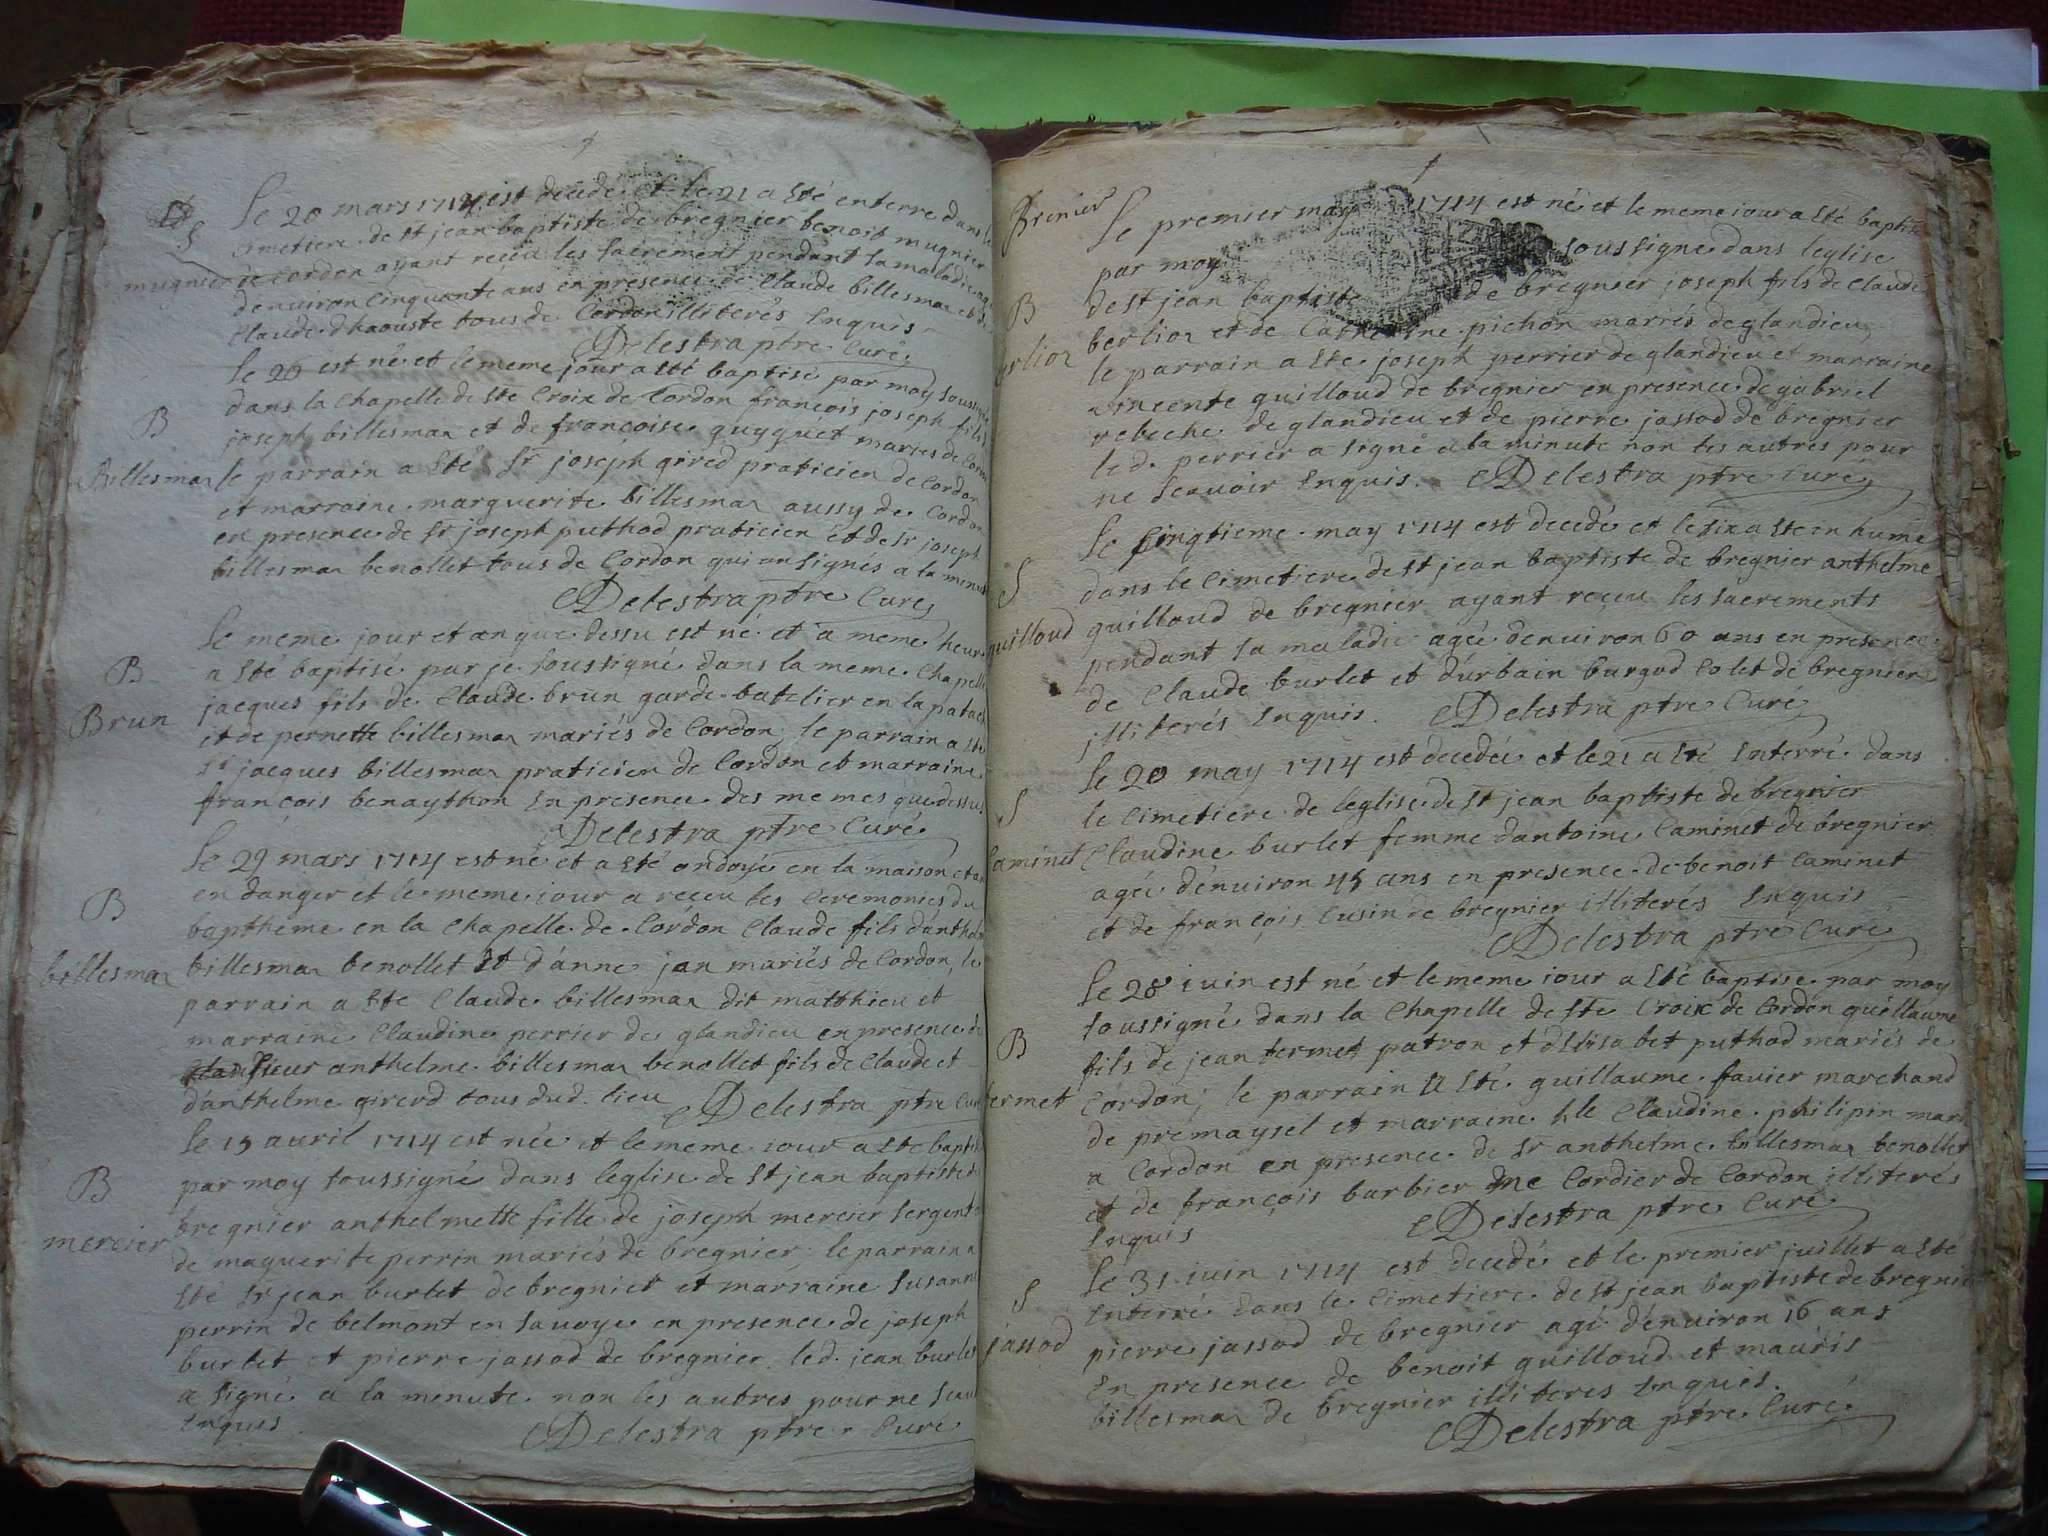 S
mugnier
Le 20 mars 1714 est decedé et le 21 a Eté enterre dans le
Cimetiere de st jean baptiste de bregnier benoit mugnier
de Cordon ayant receu les sacrement pendant sa maladie
denuiron Cinquante ans en presence de Claude billesmaz et de
Claude dhaouste tous de Cordon illiterés Enquis
Delestra ptre Curé
B
Billesmaz
Le 26 est né et le meme jour a Eté baptisé par moy soussigné
dans la Chapelle de ste Croix de Cordon françois joseph fils
joseph billesmaz et de françoise guyguet mariés de Cordon
le parrain a Eté Sr joseph gired praticien de Cordon
et marraine marguerite billesmaz aussy de Cordon
en presence de Sr joseph puthod praticien et de Sr joseph
billesmaz benollet tous de Cordon qui on signés a la minut
Delestra ptre Curé
B
Brun
Le meme jour et an que dessu est né et a meme heur
a Eté baptisé par je soussigné dans la meme Chapelle
jacques fils de Claude brun garde batelier en la patach
et de pernette billesmaz mariés de Cordon, le parrain a Eté
Sr jacques billesmaz praticien de Cordon et marraine
françois benaython En presence des memes que dessus
Delestra ptre Curé
B
billesmaz
Le 29 mars 1714 est né et a Eté ondoyé en la maison etan
en danger et le meme jour a receu les Ceremonies du
baptheme en la Chapelle de Cordon Claude fils danthel
billesmaz benollet Et d'anne jan mariés de Cordon, le
parrain a Eté Claude billesmaz dit matthieu et
marraine Claudine perrier de glandieu en presence de
sieur anthelme billesmaz benollet fils de Claude et
danthelme girerd tous dud. lieu Delestra ptre Curé
B
mercier
Le 15 avril 1714 est née et le meme iour a Eté baptis
par moy soussigné dans leglise de st jean baptiste de
bregnier anthelmette fille de joseph mercier sergent
de maguerite perrin mariés de bregnier; le parrain a
Eté Sr jean burlet de bregnier et marraine Susanne
perrin de belmont en Savoye en presence de joseph
burlet et pierre jassod de bregnier led. jean burlet
a signé a la menute non les autres pour ne scau
Enquis
Delestra ptre Curé
Brenier
B
berlioz
Le premier may 1714 est né et le meme iour a Eté baptis
par moy soussigne dans leglise
de st jean baptiste de bregnier joseph fils de Claude
berlioz et de Catherine pichon mariés de glandieu,
le parrain a Eté joseph perrier de glandieu et marraine
vincente guilloud de bregnier en presence de gabriel
rebeche de glandieu et de pierre jassod de bregnier
led. perrier a signé a la minute non les autres pour
ne scauoir Enquis. Delestra ptre Curé
S
guilloud
Le Cinqtieme may 1714 est decedé et le six a Eté en hume
dans le Cimetiere de st jean baptiste de bregnier anthelme
guilloud de bregnier ayant receu les sacrements
pendant sa maladie agée denuiron 60 ans en presence
de Claude burlet et d'urbain burgod Colet de bregnier
illiterés Enquis. Delestra ptre Curé
S
Caminet
Le 20 may 1714 est decedée et le 21 a Eté Enterré dans
le Cimetiere de leglise de st jean baptiste de bregnier
Claudine burlet femme dantoine Caminet de bregnier
agée d'enuiron 45 ans en presence de benoit Caminet
et de françois Cusin de bregnier illiterés Enquis
Delestra ptre Curé
B
termet
Le 28 iuin est né et le meme iour a Eté baptise par moy
soussigné dans la Chapelle de ste Croix de Cordon guillaume
fils de jean termet patron et d'Elisabet puthod mariés de
Cordon; le parrain a Eté guillaume favier marchand
de premaysel et marraine Claudine philipin
a Cordon en presence de Sr anthelme billesmaz benollet
et de françois barbier Cordier de Cordon illiterés
Enquis
Delestra ptre Curé
S
jassod
Le 31 iuin 1714 est decedé et le premier juillet a Eté
Enterré dans le Cimetiere de st jean baptiste de bregnier
pierre jassod de bregnier agé d'enuiron 16 ans
En presence de benoit guilloud et mauris
billesmaz de bregnier illiteres Enquis.
Delestra ptre Curé